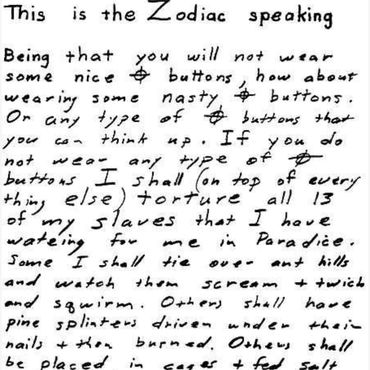 This is the Zodiac speaking
Being that you will not wear
some nice ⌖ buttons, how about
wearing some nasty ⌖ buttons.
Or any type of ⌖ buttons that
you can think up. If you do
not wear any type of ⌖
buttons I shall (on top of every
thing else) torture all 13
of my slaves that I have
wateing for me in Paradice.
Some I shall tie over ant hills
and watch them scream + twich
and squirm. Others shall have
pine splinters driven under their
nails + then burned. Others shall
be placed in cages + fed salt